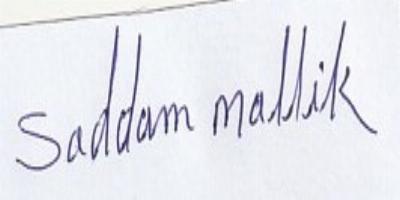 Saddam mallik